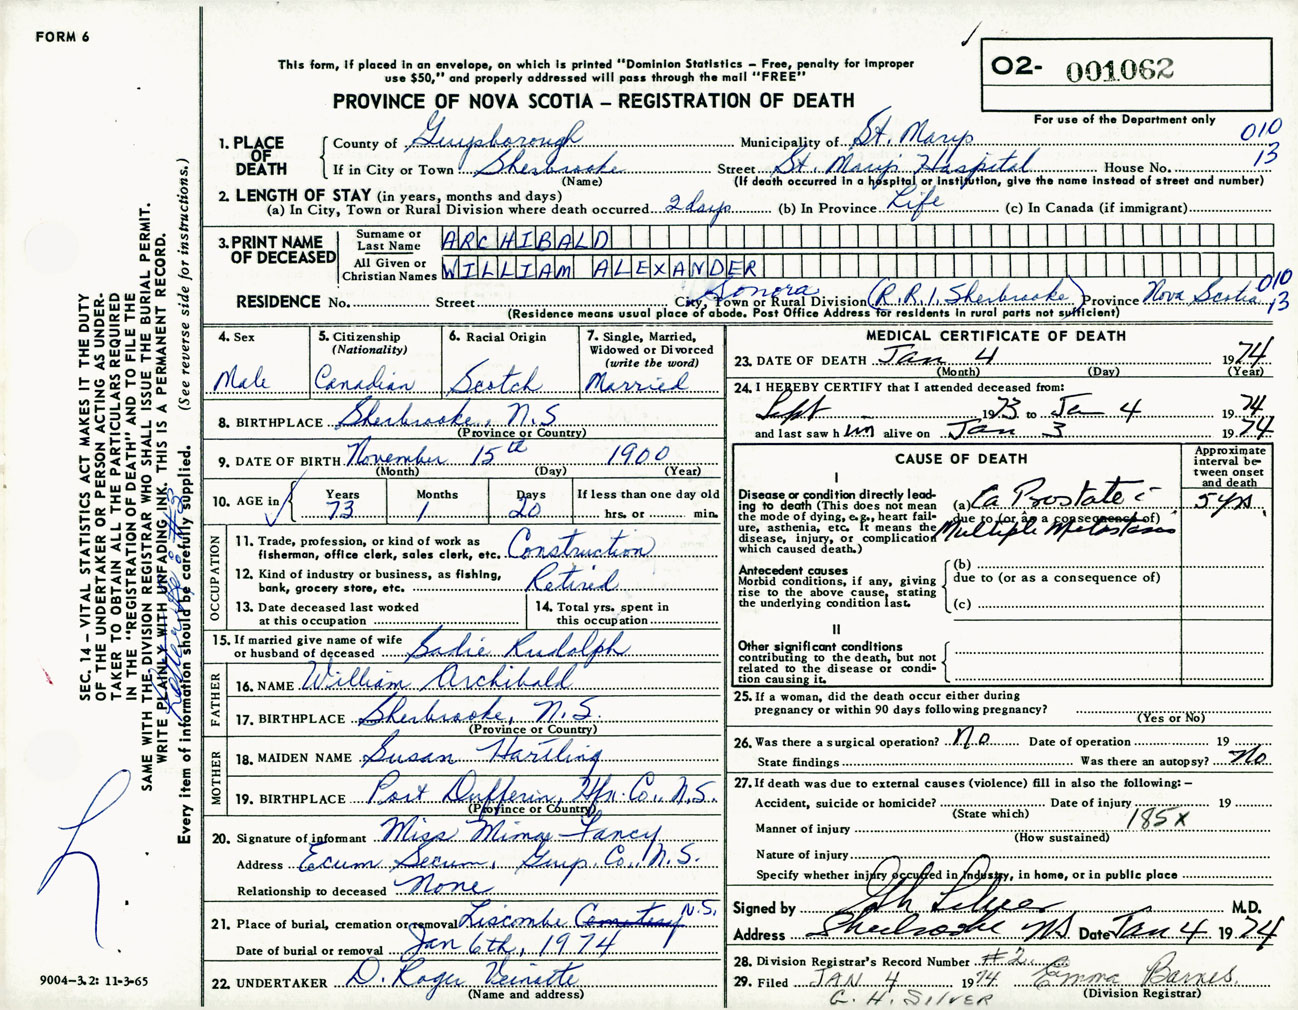 FORM 6
This form, if placed in an envelope, on which is printed "Dominion Statistics – Free, penalty for improper
use $50," and properly addressed will pass through the mail "FREE"
O2- 001062
For use of the Department only
PROVINCE OF NOVA SCOTIA – REGISTRATION OF DEATH
010
13
1. PLACE OF DEATH
County of Guysborough Municipality of St. Marys
If in City or Town Sherbrooke Street St. Mary's Hospital House No.
(Name) (If death occurred in a hospital or institution, give the name instead of street and number)
2. LENGTH OF STAY (in years, months and days)
(a) In City, Town or Rural Division where death occurred 2 days (b) In Province Life (c) In Canada (if immigrant)
3. PRINT NAME OF DECEASED
Surname or Last Name ARCHIBALD
All Given or Christian Names WILLIAM ALEXANDER
RESIDENCE No. Street City, Town or Rural Division Sonora (R.R.1. Sherbrooke) Province Nova Scotia 010
13
(Residence means usual place of abode. Post Office Address for residents in rural parts not sufficient)
4. Sex
Male
5. Citizenship
(Nationality)
Canadian
6. Racial Origin
Scotch
7. Single, Married,
Widowed or Divorced
(write the word)
Married
8. BIRTHPLACE Sherbrooke, N.S
(Province or Country)
9. DATE OF BIRTH November 15th 1900
(Month) (Day) (Year)
10. AGE in Years 73 Months 1 Days 20 If less than one day old
hrs. or min.
OCCUPATION
11. Trade, profession, or kind of work as
fisherman, office clerk, sales clerk, etc. Construction
12. Kind of industry or business, as fishing,
bank, grocery store, etc. Retired
13. Date deceased last worked
at this occupation
14. Total yrs. spent in
this occupation
15. If married give name of wife
or husband of deceased Sadie Rudolph
FATHER
16. NAME William Archibald
17. BIRTHPLACE Sherbrooke, N.S.
(Province or Country)
MOTHER
18. MAIDEN NAME Susan Hartling
19. BIRTHPLACE Port Dufferin, Hfx. Co., N.S.
(Province or Country)
20. Signature of informant Miss Minna Fancy
Address Ecum Secum, Guys. Co., N.S.
Relationship to deceased None
21. Place of burial, cremation or removal Liscombe Cemetery N.S.
Date of burial or removal Jan 6th, 1974
22. UNDERTAKER D. Roger Veinotte
(Name and address)
MEDICAL CERTIFICATE OF DEATH
23. DATE OF DEATH Jan 4 1974
(Month) (Day) (Year)
24. I HEREBY CERTIFY that I attended deceased from:
Sept 1973 to Jan 4 1974
and last saw him alive on Jan 3 1974
CAUSE OF DEATH
Approximate
interval be-
tween onset
and death
I
Disease or condition directly lead-
ing to death (This does not mean
the mode of dying, e.g., heart fail-
ure, asthenia, etc. It means the
disease, injury, or complication
which caused death.)
(a) Ca Prostate c̄ 5 yrs.
due to (or as a consequence of)
Multiple Metastases
Antecedent causes
Morbid conditions, if any, giving
rise to the above cause, stating
the underlying condition last.
(b)
due to (or as a consequence of)
(c)
II
Other significant conditions
contributing to the death, but not
related to the disease or condi-
tion causing it.
25. If a woman, did the death occur either during
pregnancy or within 90 days following pregnancy?
(Yes or No)
26. Was there a surgical operation? No Date of operation 19
State findings Was there an autopsy? No
27. If death was due to external causes (violence) fill in also the following:–
Accident, suicide or homicide? Date of injury 19
(State which)
185X
Manner of injury
(How sustained)
Nature of injury
Specify whether injury occurred in industry, in home, or in public place
Signed by G H Silver M.D.
Address Sherbrooke NS Date Jan 4 1974
28. Division Registrar's Record Number #2
29. Filed JAN 4 1974 Emma Barnes
(Division Registrar)
G. H. SILVER
SEC. 14 – VITAL STATISTICS ACT MAKES IT THE DUTY
OF THE UNDERTAKER OR PERSON ACTING AS UNDER-
TAKER TO OBTAIN ALL THE PARTICULARS REQUIRED
IN THE "REGISTRATION OF DEATH" AND TO FILE THE
SAME WITH THE DIVISION REGISTRAR WHO SHALL ISSUE THE BURIAL PERMIT.
WRITE PLAINLY WITH UNFADING INK. THIS IS A PERMANENT RECORD.
Every item of information should be carefully supplied. (See reverse side for instructions.)
9004–3.2: 11-3-65